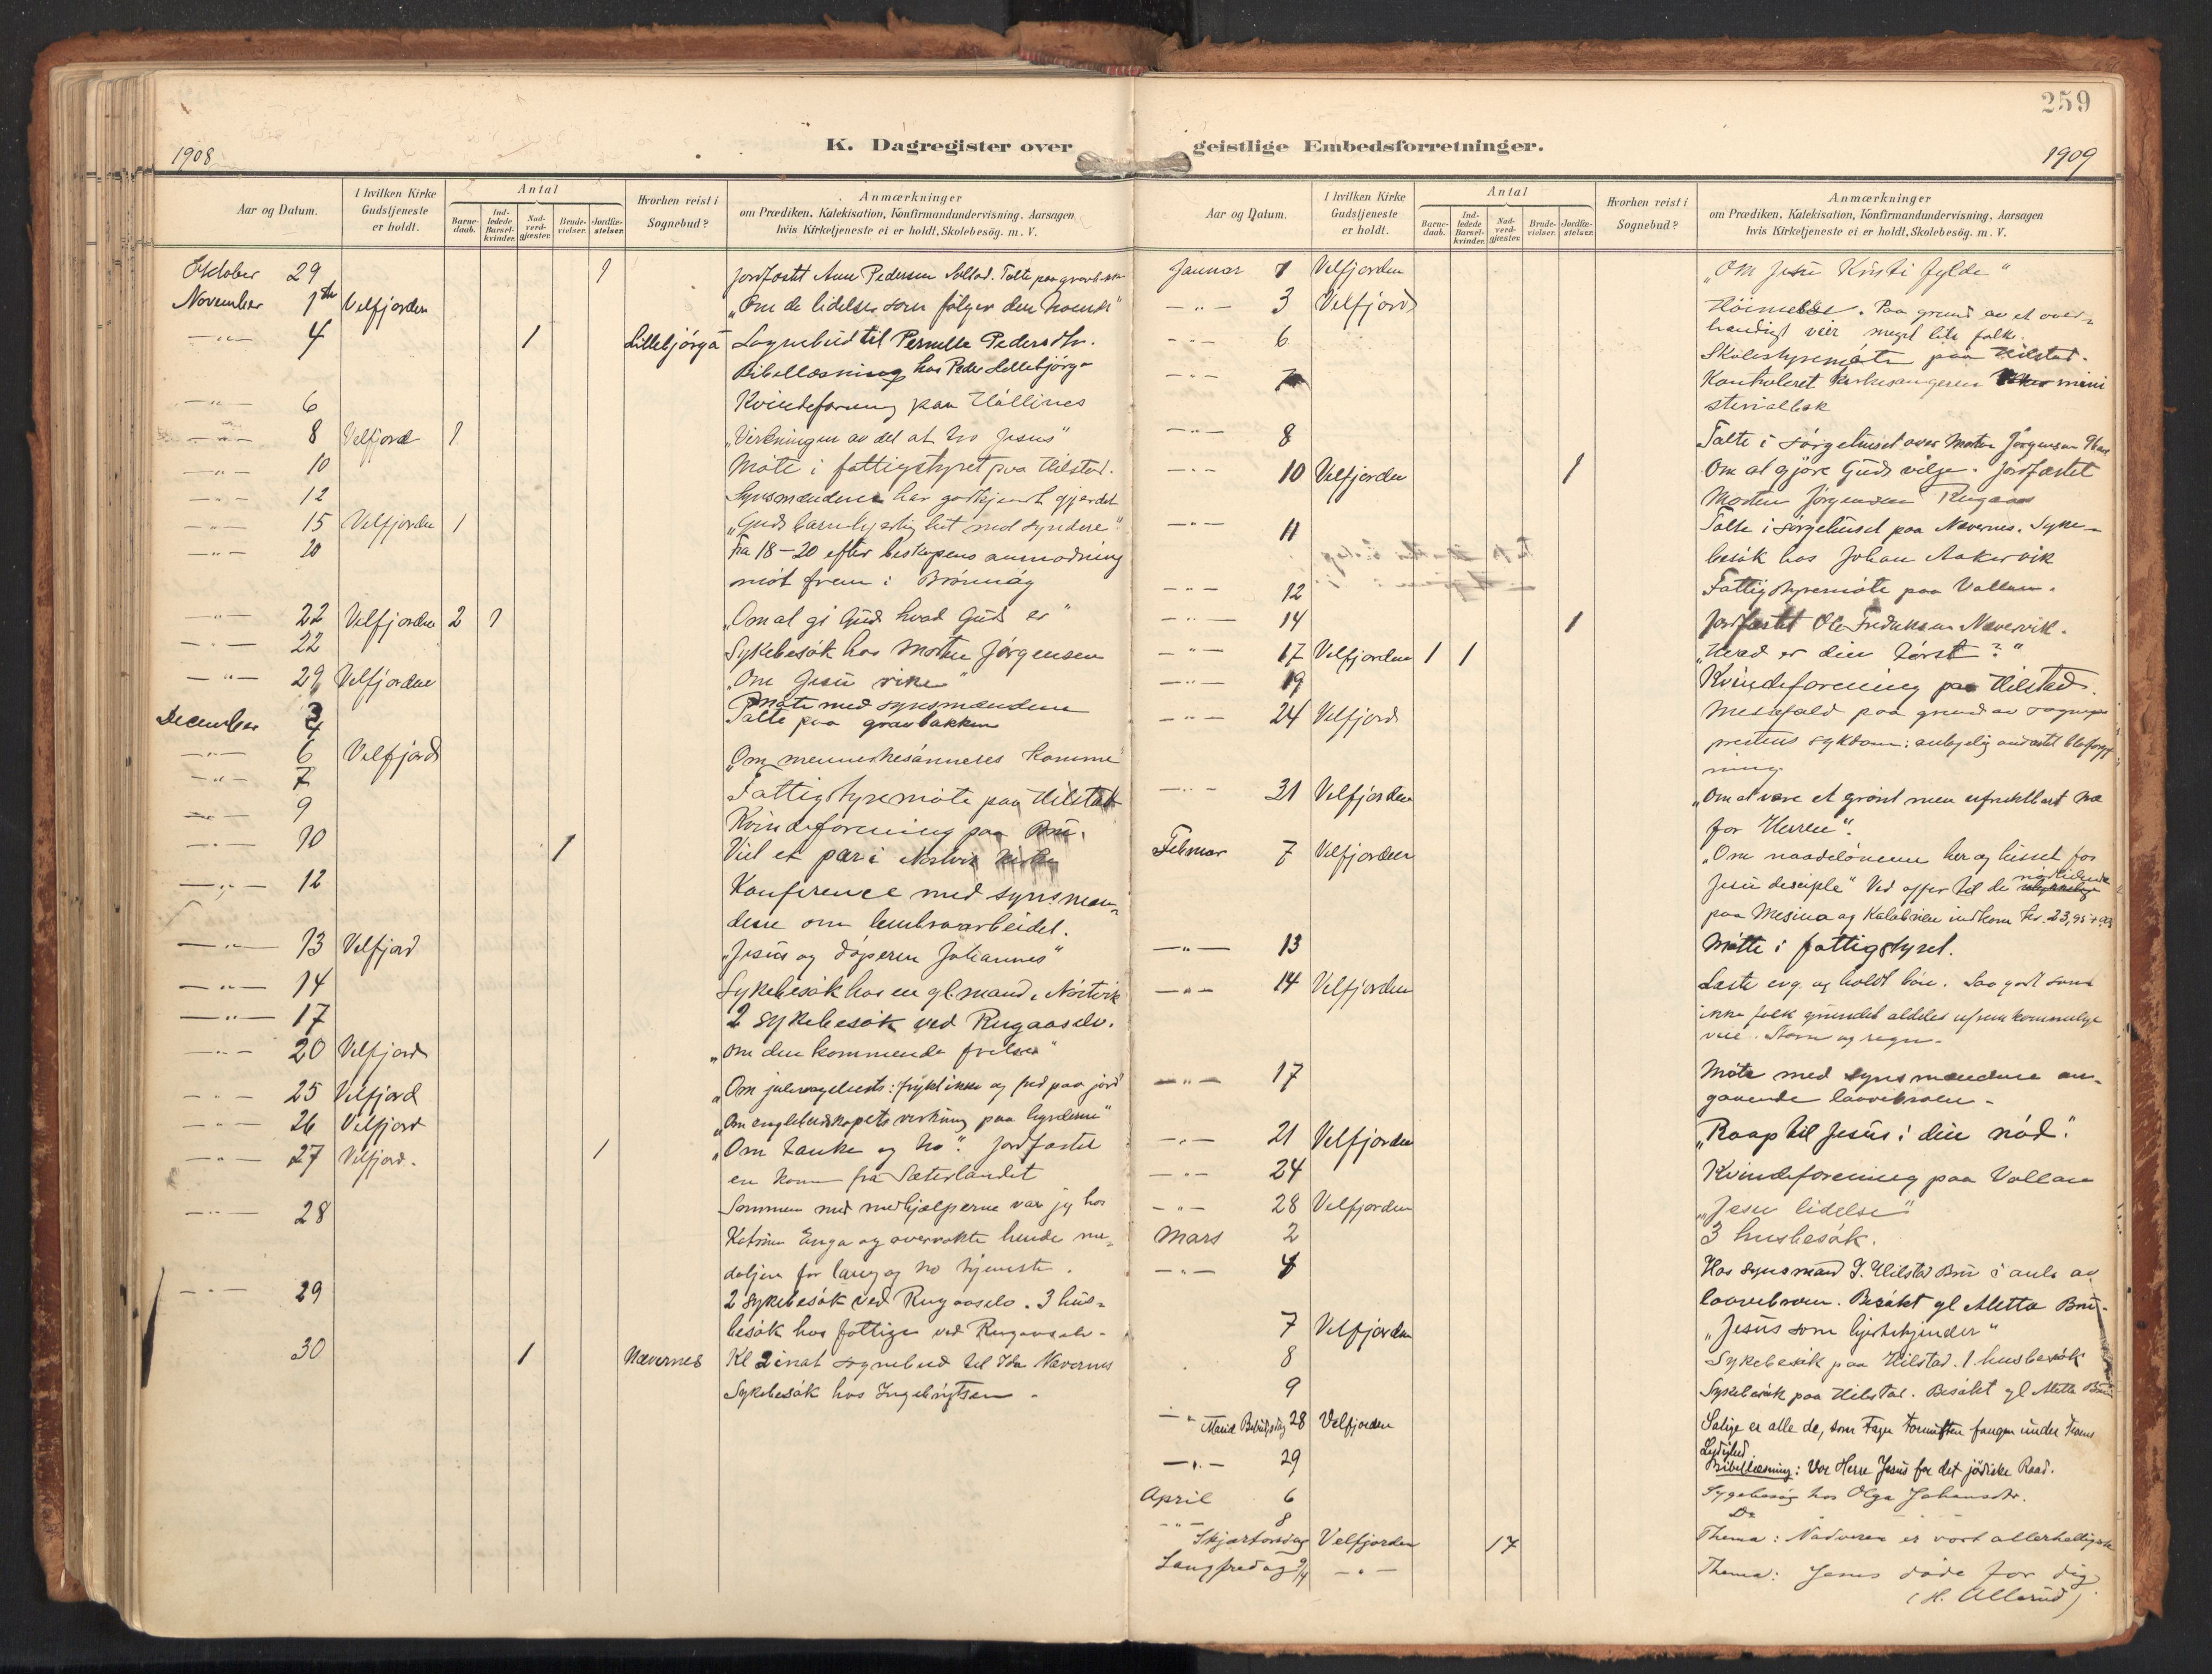 259
1908
K. Dagregister over geistlige Embedsforretninger.
1909
Aar og Datum.
I hvilken Kirke Gudstjeneste er holdt.
Antal
Barnedaab.
Indledede Barselkvinder.
Nadverdgjæster.
Brudevielser.
Jordfæstelser.
Hvorhen reist i Sognebud?
Anmærkninger
om Prædiken, Katekisation, Konfirmandundervisning, Aarsagen
hvis Kirketjeneste ei er holdt, Skolebesøg. m. V.
Oktober 29 1 Jordfæstet Ane Pedersen Talte paa
November 1ste Velfjorden "Om de lidelser som følger den
-"- 4 1 Lillebjørgå Sognebud til Pernelle Pedersdtr.
Bibellæsning hos Peder Lillebjørgå
-"- 6 Kvindeforening paa
-"- 8 Velfjord 1 "Virkningen av det at tro Jesus"
-"- 10 Møte i fattigstyret paa Hilstad.
-"- 12 Synsmændene har godkjendt gjerdet
-"- 15 Velfjorden 1 "Guds barmhjertighet mod syndere"
-"- 20 Fra 18-20 efter biskopens anmodning
møt frem i Brønnøy
-"- 22 Velfjorden 2 1 "Om at gi Gud hvad Guds er"
-"- 22 Sykebesøk hos Morten Jørgensen
-"- 29 Velfjorden "Om Jesu rike"
December 3 Møte med synsmændene
4 Talte paa gravbakken
-"- 6 Velfjord "Om menneskesønnens komme"
-"- 7 Fattigstyremøte paa Hilstad
-"- 9 Kvindeforening paa
-"- 10 1 Viet et par i Nordvik kirke
-"- 12 Konference med synsmæn-
dene om
-"- 13 Velfjord "Jesus og døperen Johannes"
-"- 14 Sykebesøk hos en gl. mand i
-"- 17 2 sykebesøk ved Rugaaselv.
-"- 20 Velfjord "Om den kommende frelser"
-"- 25 Velfjord "Om juleevangeliets: frykt ikke og fred paa jord
-"- 26 Velfjord "Om englebudskapets virkning paa hyrderne"
-"- 27 Velfjord. 1 "Om tanke og tro". Jordfæstet
en kone fra Sæterlandet
-"- 28 Sammen med medhjælperne var jeg hos
Katrine Enga og overrakte hende me-
daljen for lang og tro tjeneste.
-"- 29 2 sykebesøk ved Rugaaselv. 3 hus-
besøk hos fattige ved Rugaaselv.
30 1 Nævernes Kl 2 inat sognebud til Ida Nævernes
Sykebesøk hos Ingebrigtsen.
Aar og Datum.
I hvilken Kirke Gudstjeneste er holdt.
Antal
Barnedaab.
Indledede Barselkvinder.
Nadverdgjæster.
Brudevielser.
Jordfæstelser.
Hvorhen reist i Sognebud?
Anmærkninger
om Prædiken, Katekisation, Konfirmandundervisning, Aarsagen
hvis Kirketjeneste ei er holdt, Skolebesøg. m. V.
Januar 1 Velfjorden "Om Jesu Kristi fylde"
-"- 3 Velfjord Høimesse. Paa grund av et over-
hændigt veir meget lite folk.
-"- 6 Skolestyremøte paa Hilstad.
-"- 7 Kontroleret kirkesangerens mini
sterialbok
-"- 8 Talte i sørgehuset over Morten Jørgensen
-"- 10 Velfjorden 1 Om at gjøre Guds vilje. Jordfæstet
Morten Jørgensen Rugaas
-"- 11 Talte i sørgehuset paa Nævernes. Syke-
besøk hos Johan Aakervik
-"- 12 Fattigstyremøte paa Vollan.
-"- 14 1 Jordfæstet Ole Fredriksen Nævervik.
-"- 17 Velfjorden 1 1 "Hvad er din tørst?"
-"- 19 Kvindeforening paa Hilstad.
-"- 24 Velfjord Messefald paa grund av sogne-
prestens sykdom:
-"- 31 Velfjorden "Om at være et grønt men ufruktbart træ
for Herren".
Februar 7 Velfjorden "Om naadelønnen her og hisset for
Jesu disciple" Ved offer til de nødlidende
paa Mesina og Kalabrien indkom kr. 23,95
-"- 13 Møtte i fattigstyret.
-"- 14 Velfjorden Læste evg. og holdt bøn. Saa godt som
ikke folk grundet aldeles ufremkommelige
veie. Storm og regn.
-"- 17 Møte med synsmændene an-
gaaende
-"- 21 Velfjorden "Raap til Jesus i din nød".
-"- 24 Kvindeforening paa Vollan
-"- 28 Velfjorden "Jesu lidelse"
Mars 2 3 husbesøk.
-"- 4 Hos synsmand Hilstad
Besøkt gl. Aletta
7 Velfjorden "Jesus som hjertekjender"
8 Sykebesøk paa Hilstad. 1 husbesøk
9 Sykebesøk paa Hilstad. Besøkt gl Aletta
-"- Mariæ Bebud.dag 28 Velfjorden Salige er alle de, som tager Fornuften fangen under Troens
Lydighed.
-"- 29 Bibellæsning: Vor Herre Jesus for det jødiske Raad.
April 6 Sygebesøg hos Olga Johansdtr.
-"- 8 Do
Skjærtorsdag Velfjorden 17 Thema: Nadveren er vort allerhelligste
Langfredag 9/4 -"- Thema: Jesus døde for dig
(H. Ullerud)